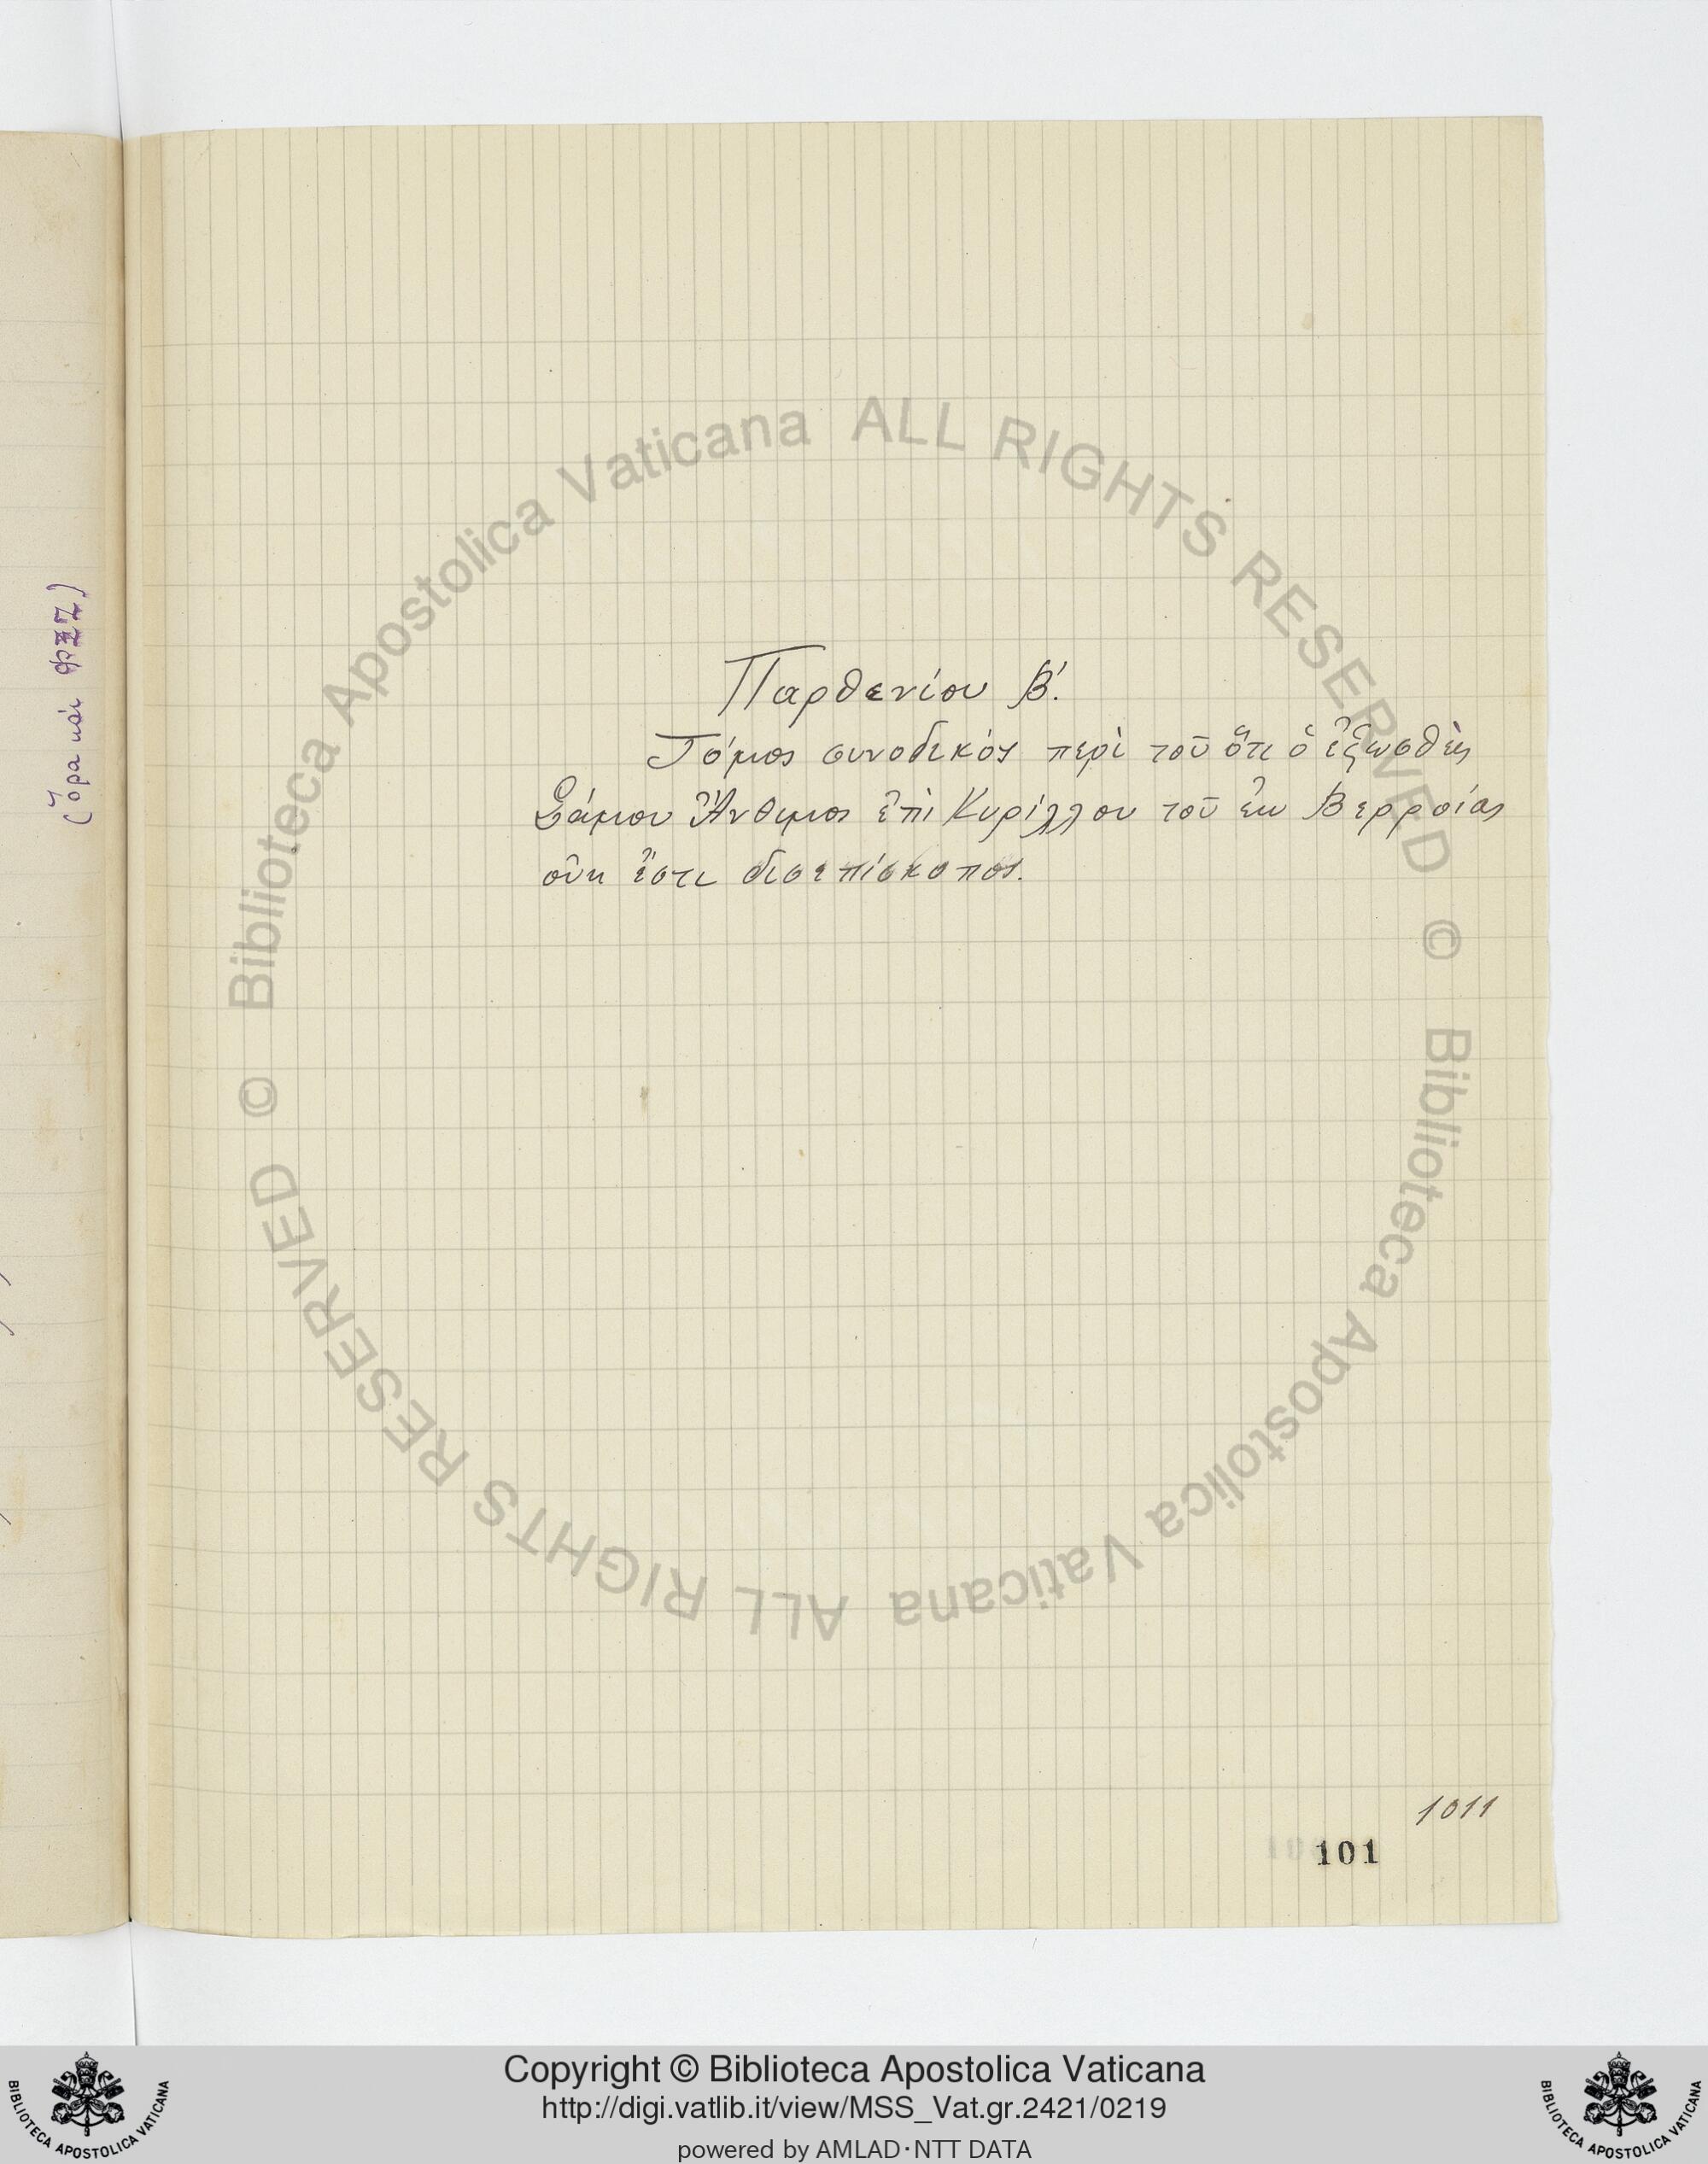 (Ὅρα καὶ
Παρθενίου Β΄.
Τόμος συνοδικός περὶ τοῦ ὅτι ὁ ἐξωσθεὶς
Σάμου Ἄνθιμος ἐπὶ Κυρίλλου τοῦ ἐκ Βερροίας
οὐκ ἔστι δισεπίσκοπος.
1011
101
© Biblioteca Apostolica Vaticana ALL RIGHTS RESERVED
© Biblioteca Apostolica Vaticana ALL RIGHTS RESERVED
Copyright © Biblioteca Apostolica Vaticana
http://digi.vatlib.it/view/MSS_Vat.gr.2421/0219
powered by AMLAD·NTT DATA
BIBLIOTECA APOSTOLICA VATICANA
BIBLIOTECA APOSTOLICA VATICANA